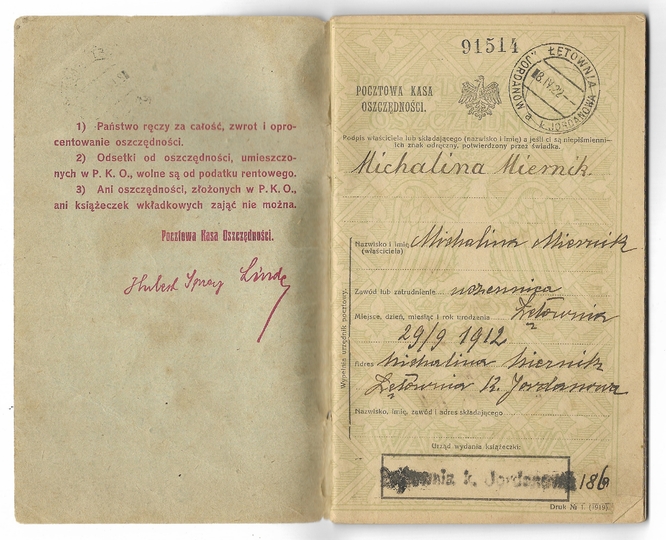 1) Państwo ręczy za całość, zwrot i opro-
centowanie oszczędności.
2) Odsetki od oszczędności, umieszczo-
nych w P. K. O., wolne są od podatku rentowego.
3) Ani oszczędności, złożonych w P. K. O.,
ani książeczek wkładkowych zająć nie można.
Pocztowa Kasa Oszczędności.
Hubert Linde
91514
ŁĘTOWNIA
k. JORDANOWA
18.IV.22
POCZTOWA KASA
OSZCZĘDNOŚCI.
Podpis właściciela lub składającego (nazwisko i imię) a jeśli ci są niepiśmienni-
ich znak odręczny, potwierdzony przez świadka.
Michalina Miernik.
Nazwisko i imię Michalina Miernik
(właściciela)
Zawód lub zatrudnienie uczennica
Miejsce, dzień, miesiąc i rok urodzenia Łętownia
29/9 1912
Adres Michalina Miernik
Łętownia k. Jordanowa
Nazwisko, imię, zawód i adres składającego
Wypełnia urzędnik pocztowy.
Urząd wydania książeczki:
Łętownia k. Jordanowa
Druk № 1. (1919).